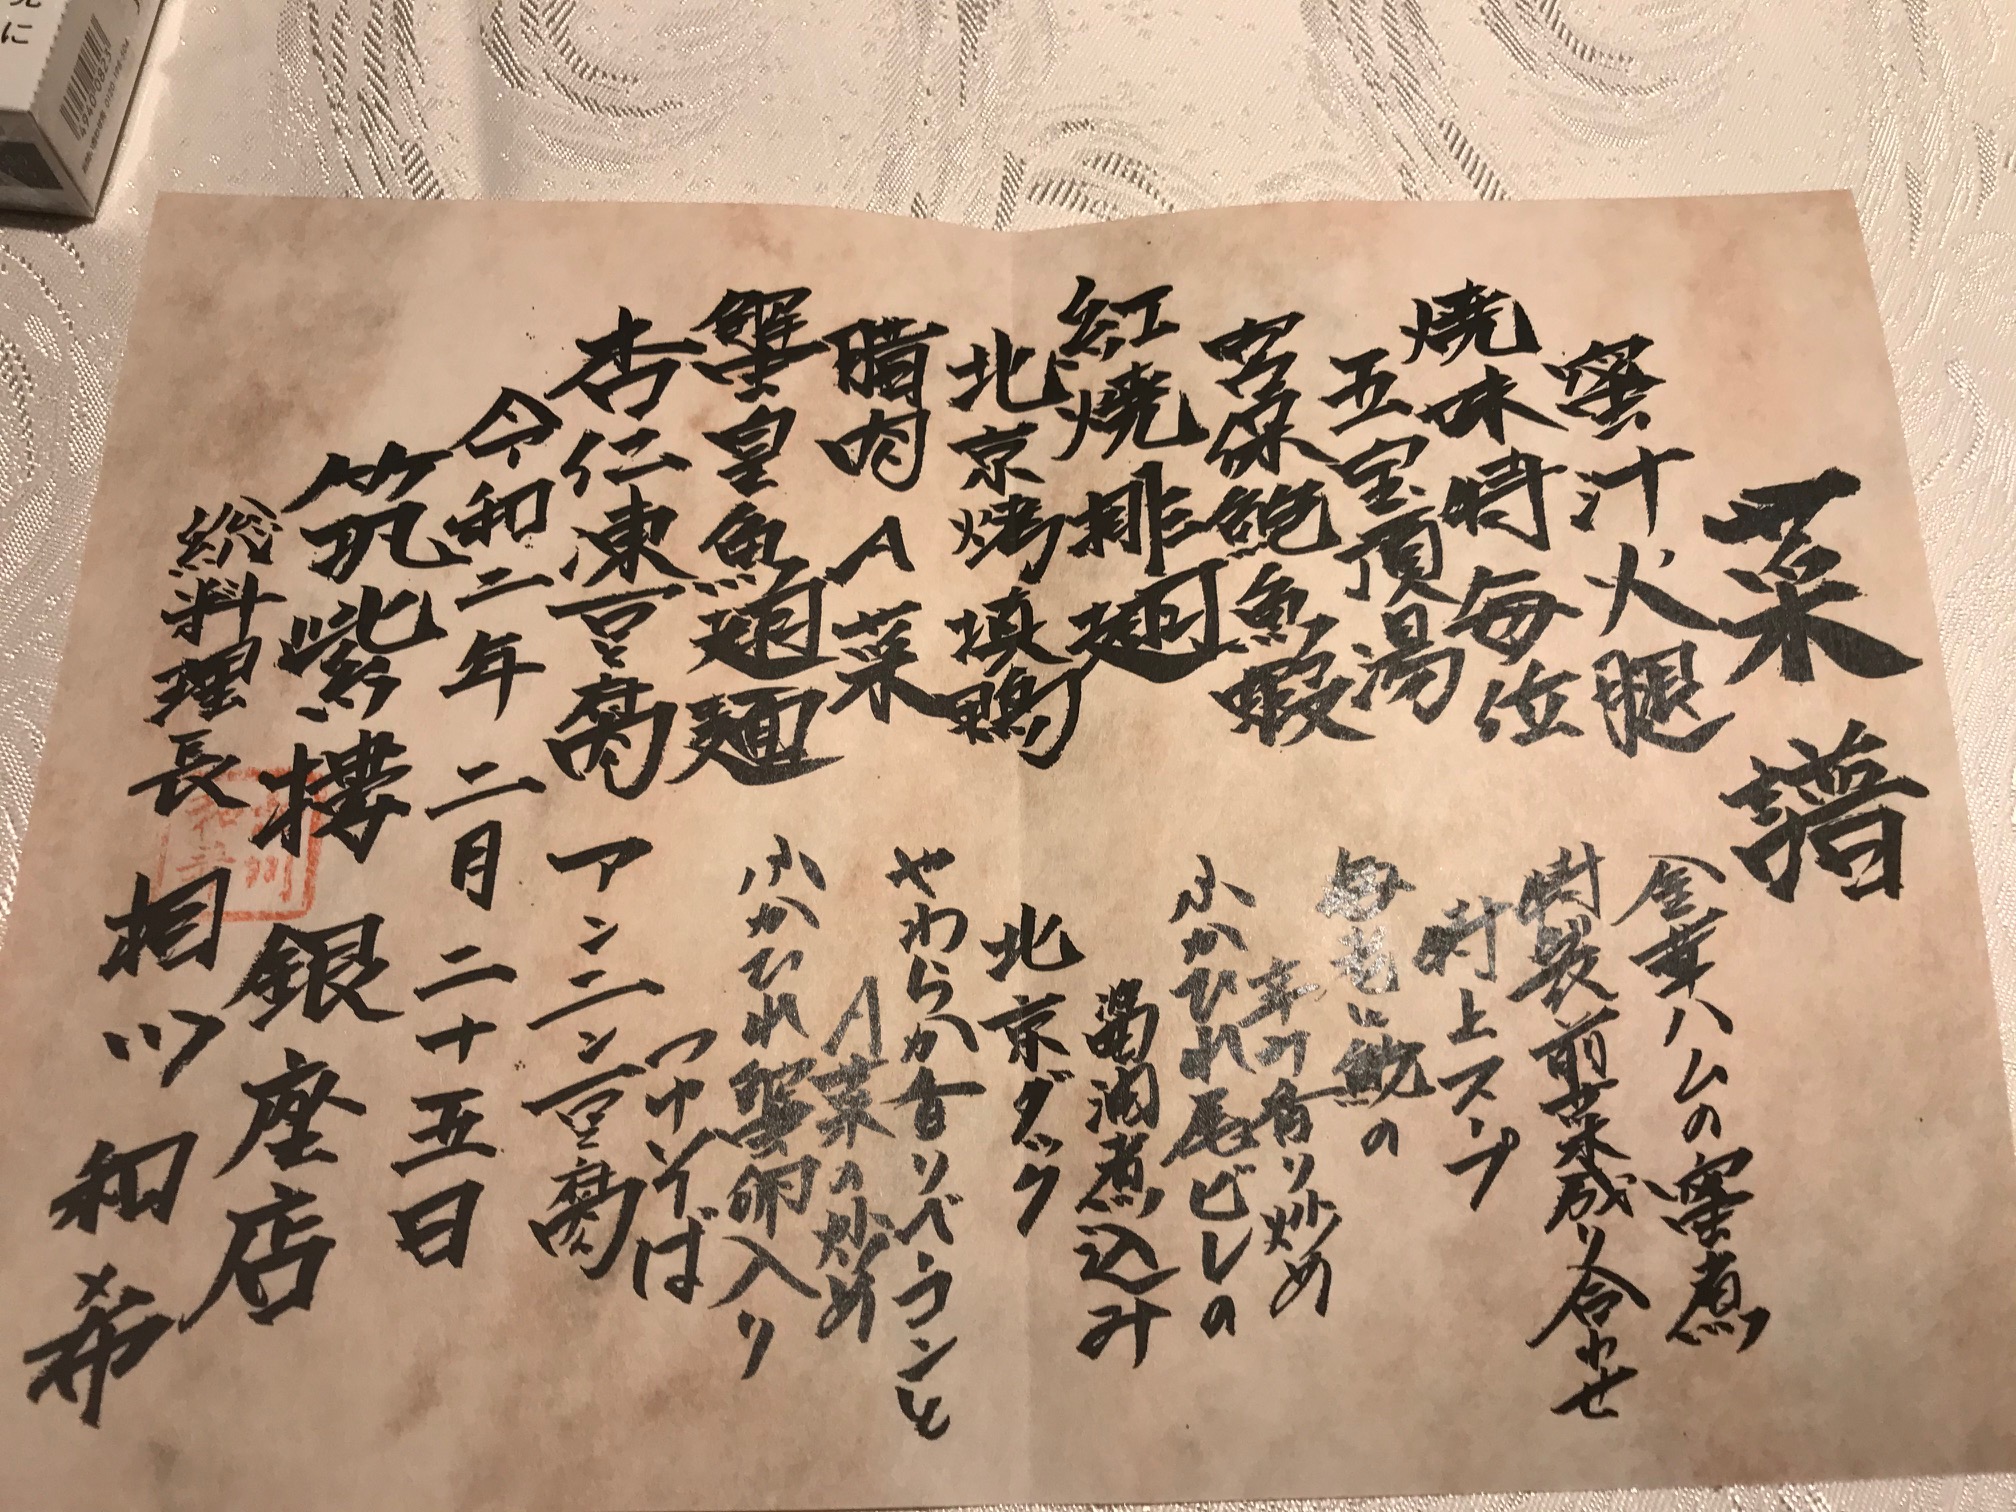 菜譜
蜜汁火腿 金華ハムの蜜煮
焼味特每位 特製前菜成り合わせ
五宝頂湯 特上スープ
宮保鮑魚蝦 海老と鮑の
辛口香り炒め
紅燒排翅 ふかひれ尾ビレの
醤油煮込み
北京烤填鴨 北京ダック
腊肉A菜 やわらか香りベーコンと
A菜の炒め
蟹皇魚翅麺 ふかひれ蟹卵入り
つゆそば
杏仁凍豆腐 アンニン豆腐
令和二年 二月 二十五日
筑紫樓 銀座店
総料理長 相川和希
に